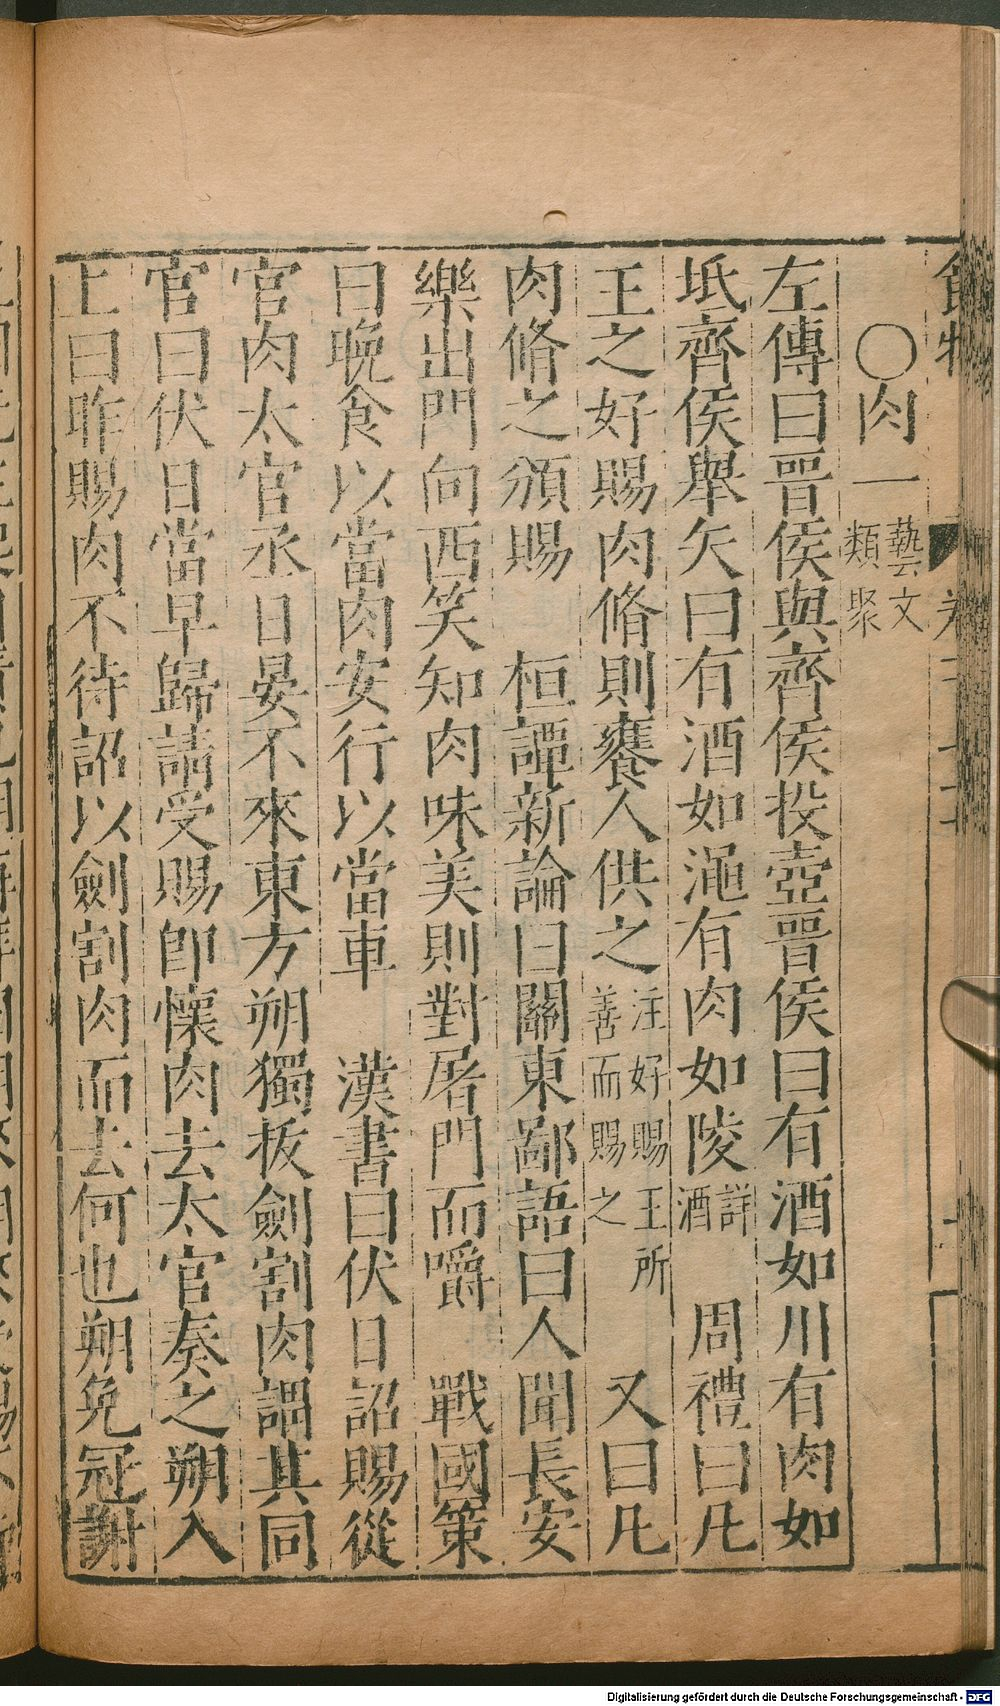 食物
〇肉一藝文類聚
左傳曰晋侯與齊侯投壺晋侯曰有酒如川有肉如
坻齊侯舉矢曰有酒如澠有肉如陵詳酒　周禮曰凡
王之好賜肉脩則饔人供之注好賜王所善而賜之　又曰凡
肉脩之頒賜　桓譚新論曰關東鄙語曰人聞長安
樂出門向西笑知肉味美則對屠門而嚼　戰國策
曰晚食以當肉安行以當車　漢書曰伏日詔賜從
官肉太官丞日晏不來東方朔獨拔劍割肉謂其同
官曰伏日當早歸請受賜卽懷肉去太官奏之朔入
上曰昨賜肉不待詔以劍割肉而去何也朔免冠謝
Digitalisierung gefördert durch die Deutsche Forschungsgemeinschaft - DFG